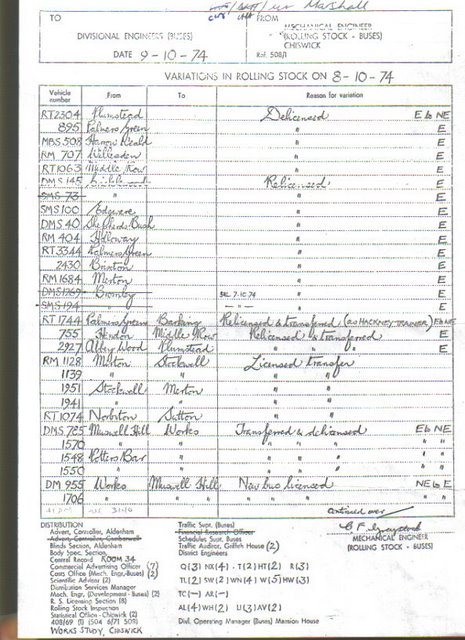 Marshall
TO
FROM
DIVISIONAL ENGINEERS (BUSES)
MECHANICAL ENGINEER
(ROLLING STOCK - BUSES)
CHISWICK
DATE 9-10-74
Ref. 508/1
VARIATIONS IN ROLLING STOCK ON 8-10-74
Vehicle number From To Reason for variation
RT2304 Plumstead Delicensed E to NE
895 Palmers Green " E
MBS 508 Harrow Weald " E
RM 707 Willesden " E
RT1063 Middle Row " E
DMS 145 Relicensed E
SMS 73 " "
SMS 100 Edgware " E
DMS 40 Shepherds Bush " E
RM 404 Holloway " E
RT3344 Palmers Green " E
2430 Brixton " E
RM 1684 Merton " E
DMS1269 Bromley SEE 7-10-74 E
SMS 194 " " E
RT 1744 Palmers Green Barking Relicensed & transferred (as HACKNEY-TRAINER) E to NE
755 Hendon Middle Row Relicensed & transferred E
2927 Abbey Wood Plumstead " " E
RM 1128 Merton Stockwell Licensed transfer
1139 " " " "
1951 Stockwell Merton " "
1941 " " " "
RT 1074 Norbiton Sutton " "
DMS 725 Muswell Hill Works Transferred & delicensed E to NE
1570 " " " " " "
1548 Potters Bar " " " " "
1550 " " " " " "
DM 955 Works Muswell Hill New bus licensed NE to E
1706 " " " " " "
continued over
DISTRIBUTION
Advert. Controller, Aldenham
Advert. Controller, Camberwell
Blinds Section, Aldenham
Body Spec. Section
Central Record ROOM 34
Commercial Advertising Officer (7)
Costs Office (Mech. Engr-Buses) (2)
Scientific Adviser (2)
Distribution Services Manager
Mech. Engr. (Development - Buses) (2)
R. S. Licensing Section (8)
Rolling Stock Inspection
Statistical Office - Chiswick (2)
408/69 (1) (504 6/71 509)
WORKS STUDY, CHISWICK
Traffic Supt. (Buses)
Financial Research Officer
Schedules Supt. Buses
Traffic Auditor, Griffith House (2)
District Engineers
Q(3) NX(4) T(2) HT(2) R(3)
TL(2) SW(2) WN(4) W(5) HW(3)
TC(-) AR(-)
AL(4) WH(2) U(3) AV(2)
Divl. Operating Manager (Buses) Mansion House
MECHANICAL ENGINEER
(ROLLING STOCK - BUSES)